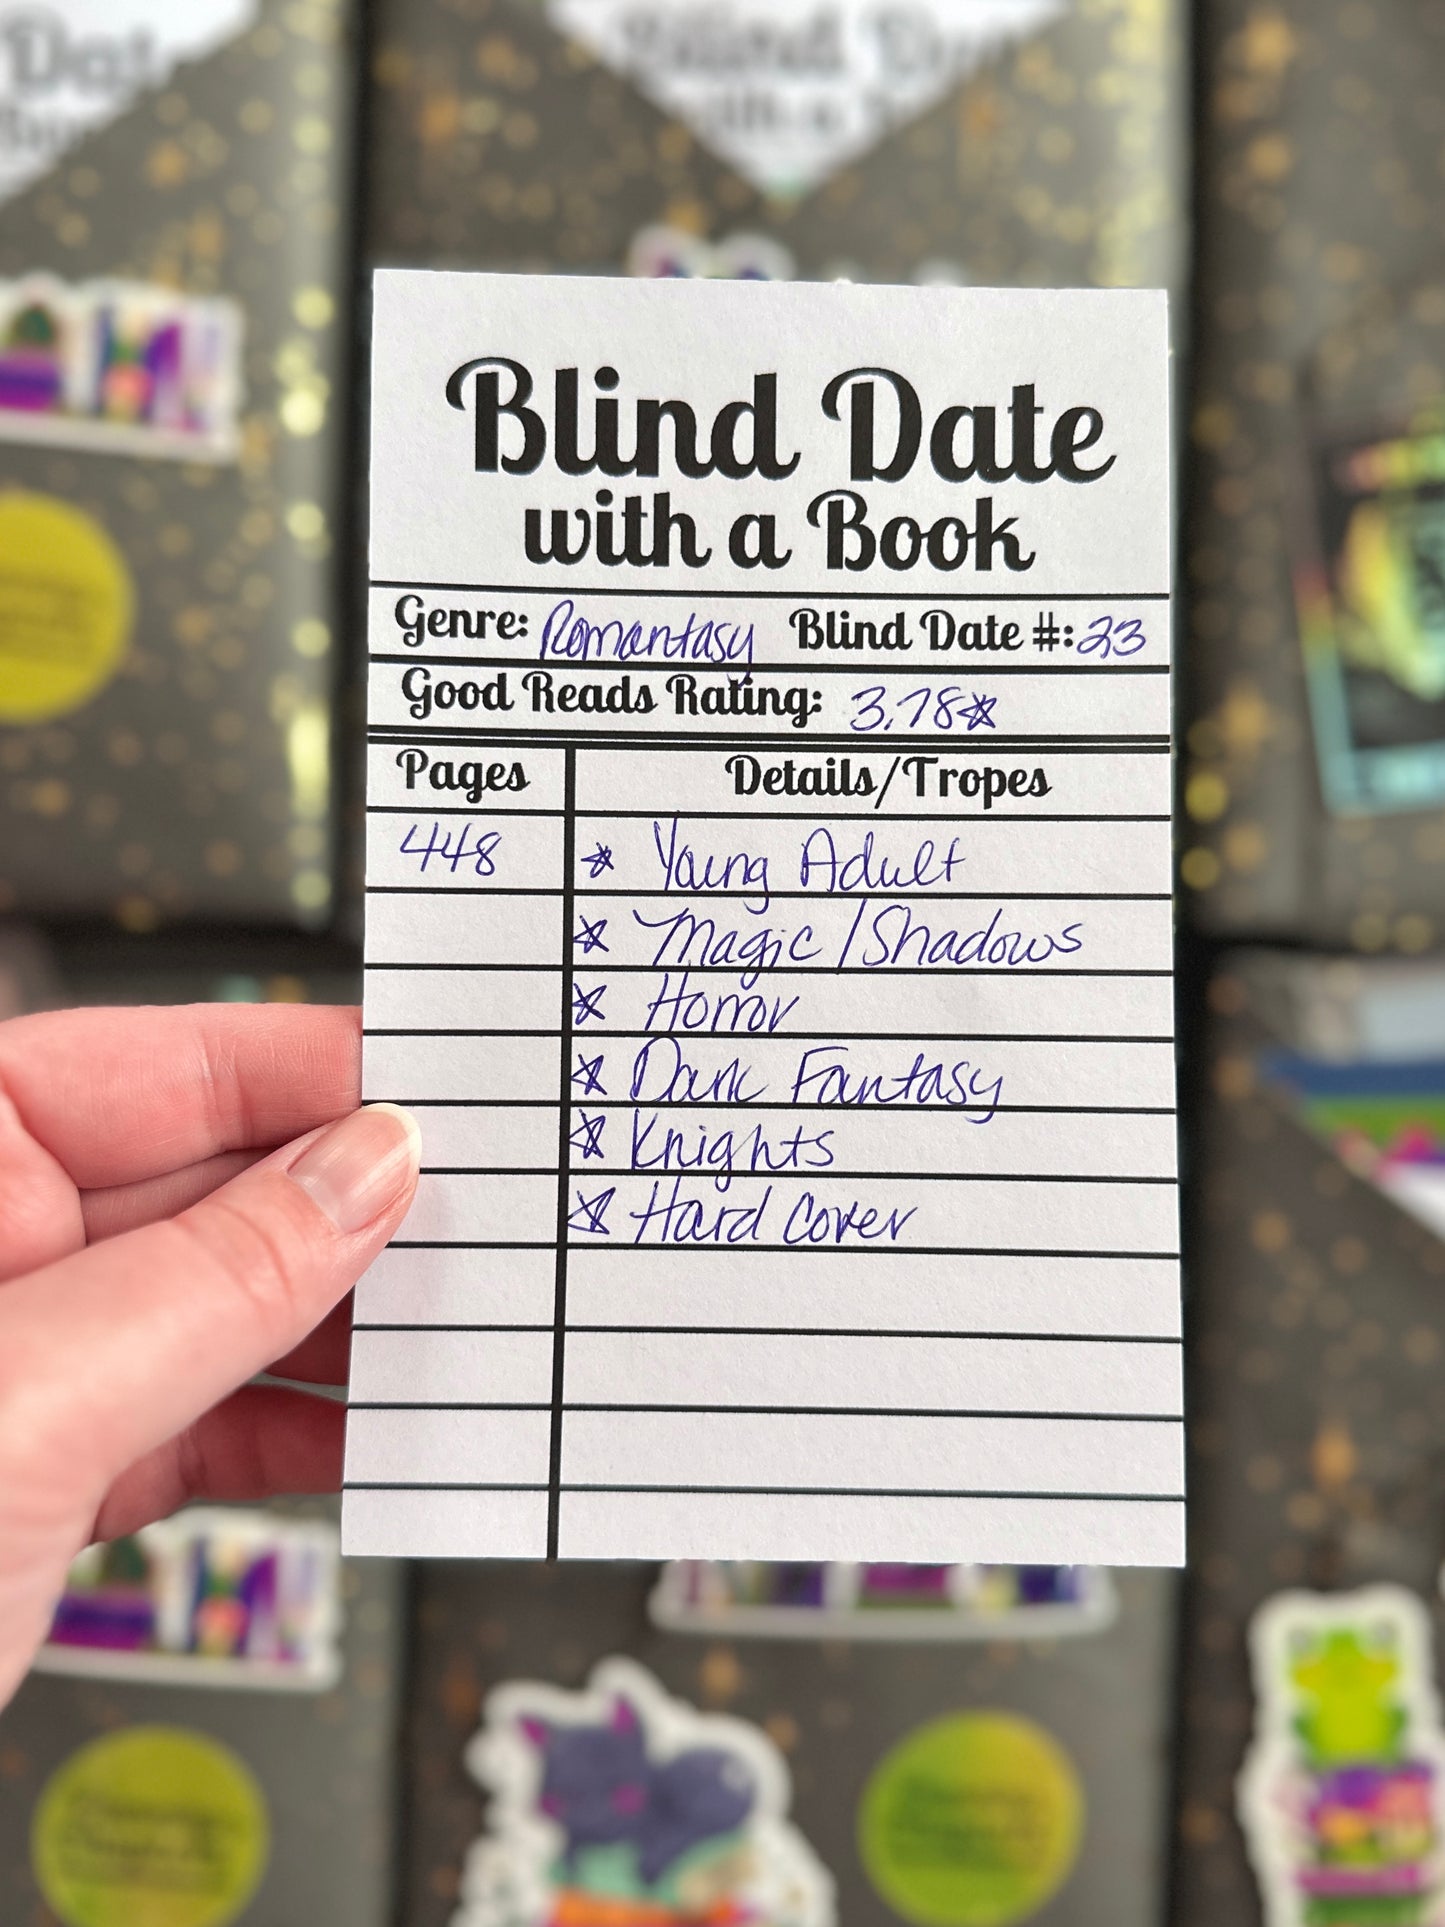 Blind Date
with a Book
Genre: Romantasy Blind Date #: 23
Good Reads Rating: 3.78☆
Pages Details/Tropes
448 ☆ Young Adult
☆ Magic/Shadows
☆ Horror
☆ Dark Fantasy
☆ Knights
☆ Hard Cover